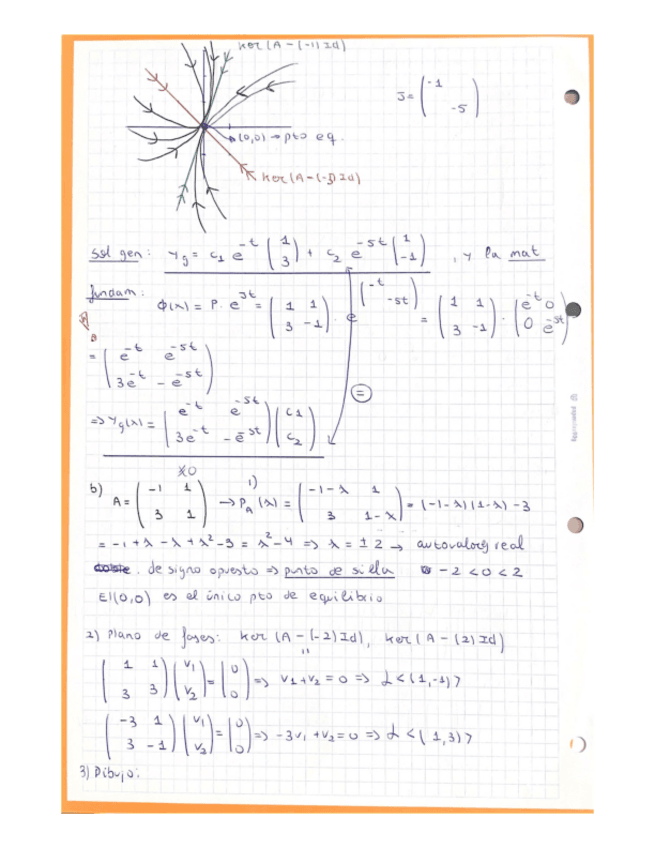 ker (A - (-1) Id)
J = ( -1 -5 )
(0,0) → pto eq.
ker (A - (-5) Id)
Sol gen: Yg = c₁ e^-t (1 3) + c₂ e^-5t (1 -1), y la mat
fundam: Φ(x) = P. e^Jt = (1 1 3 -1) . e^(-t -5t) = (1 1 3 -1) . (e^-t 0 0 e^-5t)
= (e^-t e^-5t 3e^-t - e^-5t)
⇒ Yg(x) = (e^-t e^-5t 3e^-t - e^-5t) (c₁ c₂)
=
b) A = (-1 1 3 1) → 1) P_A (λ) = (-1-λ 1 3 1-λ) = (-1-λ)(1-λ) - 3
= -1 + λ - λ + λ² - 3 = λ² - 4 ⇒ λ = ± 2 → autovalores real
de signo opuesto ⇒ punto de silla -2 < 0 < 2
El (0,0) es el único pto de equilibrio
2) Plano de fases: ker (A - (-2) Id), ker (A - (2) Id)
(1 1 3 3) (v₁ v₂) = (0 0) ⇒ v₁ + v₂ = 0 ⇒ L < (1, -1) >
(-3 1 3 -1) (v₁ v₂) = (0 0) ⇒ -3v₁ + v₂ = 0 ⇒ L < (1, 3) >
3) Dibujo: